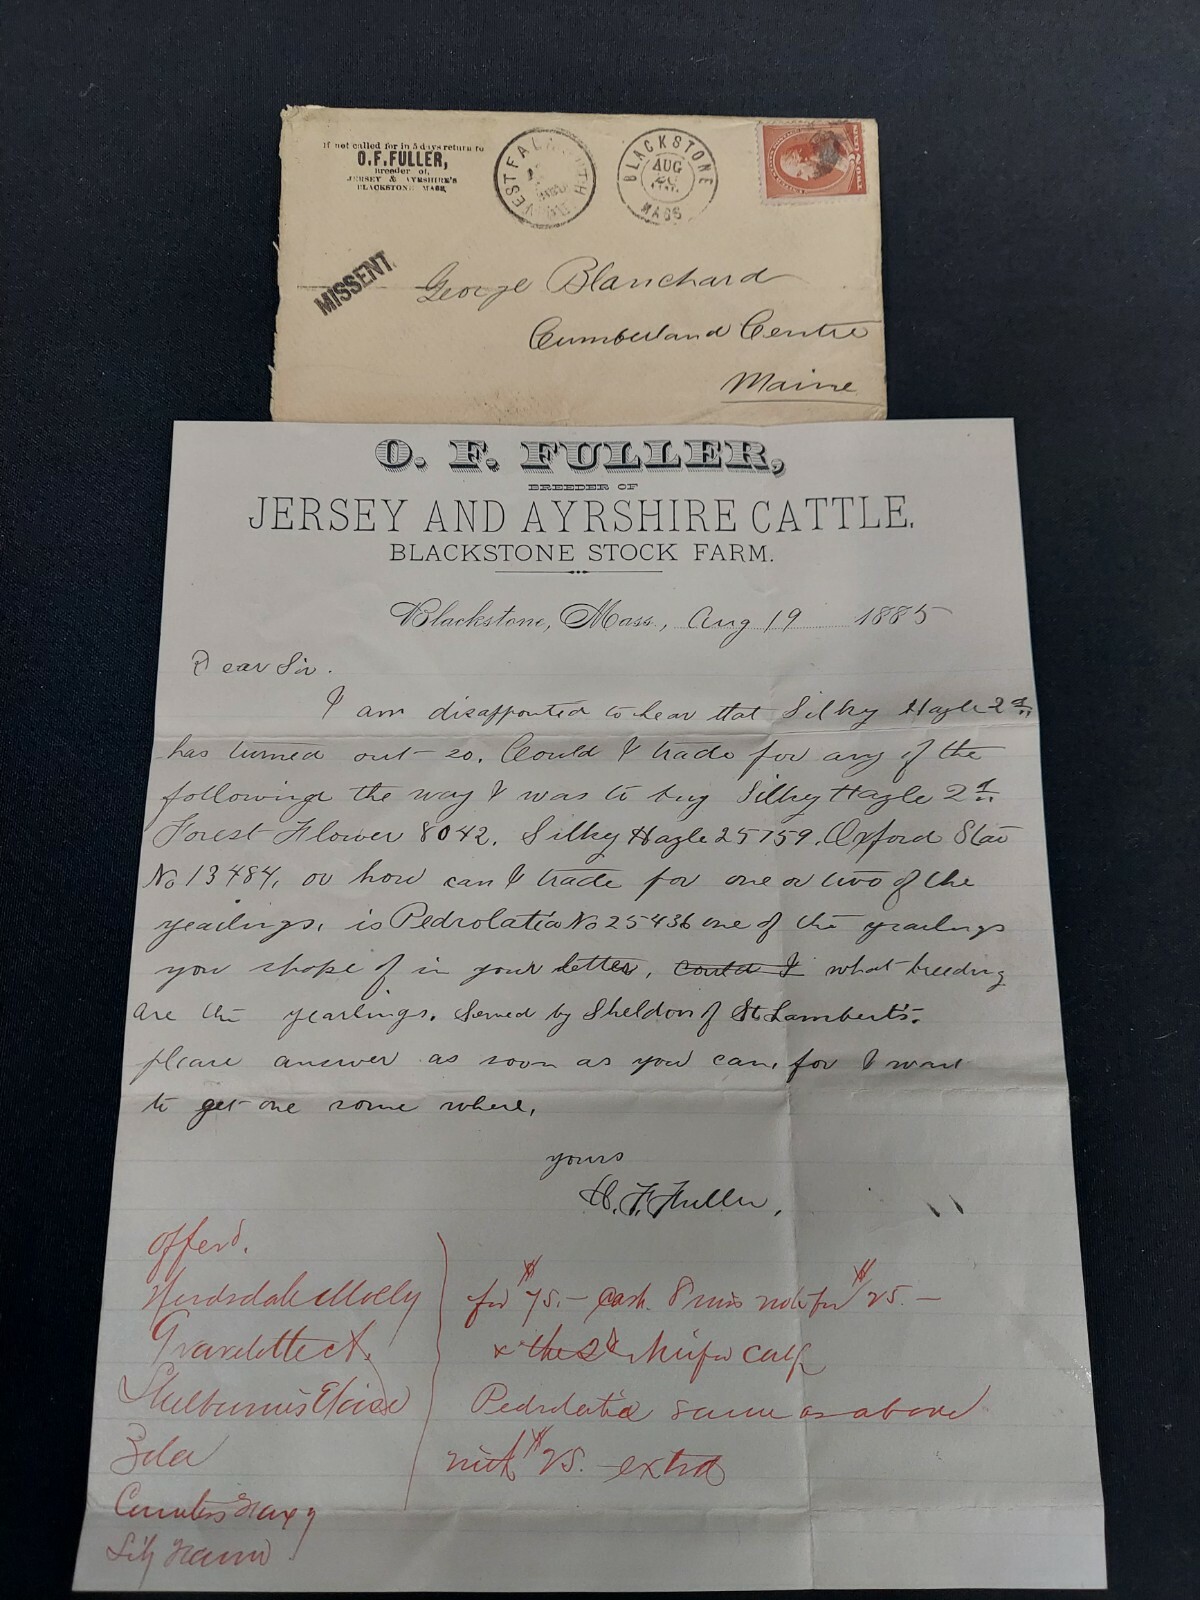 If not called for in 5 days return to
O. F. FULLER,
Breeder of,
JERSEY & AYRSHIRE'S
BLACKSTONE MASS
BLACKSTONE
AUG
MASS
MISSENT
George Blanchard
Cumberland Centre
Maine
O. F. FULLER,
BREEDER OF
JERSEY AND AYRSHIRE CATTLE.
BLACKSTONE STOCK FARM.
Blackstone, Mass., Aug 19 1885
Dear Sir.
I am disappointed to hear that Silky Hazle 2d
has turned out so. Could I trade for any of the
following the way I was to buy Silky Hazle 2d
Forest Flower 8042. Silky Hazle 25759. Oxford Star
No 13484. or how can I trade for one or two of the
yearlings. is Pedrolatia No 25436 one of the yearlings
you spoke of in your letter, could I what breeding
are the yearlings. Served by Sheldon of St Lambert's.
please answer as soon as you can, for I want
to get one some where,
yours
O. F. Fuller,
offerd.
Molly for $75. - cash. 8 mos note for $25. -
& the 2d heifer calf
Pedrolatia same as above
with $25. - extra
Zela